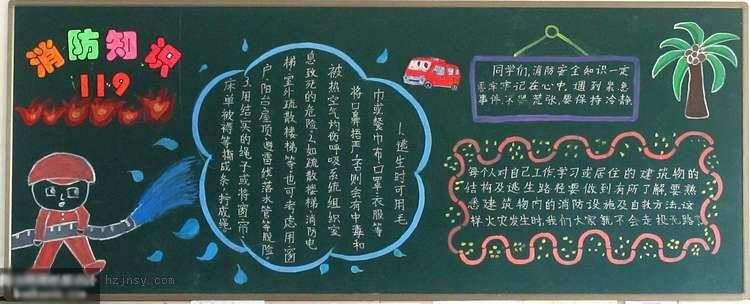 消防知识
119
1.逃生时可用毛
巾或餐巾布口罩衣服等
将口鼻捂严,否则会有中毒和
被热空气灼伤呼吸系统组织窒
息致死的危险2.如疏散楼梯消防电
梯室外疏散楼梯等也可考虑用窗
户阳台屋顶避雷线落水管等脱险
3.用结实的绳子或将窗帘、
床单被褥等撕成条,拧成绳
同学们,消防安全知识一定
要牢牢记在心中,遇到紧急
事件,不要荒张,要保持冷静
每个人对自己工作学习或居住的建筑物的
结构及逃生路径要做到有所了解,要熟
悉建筑物内的消防设施及自救方法.这
样火灾发生时,我们大家就不会走投无路了
hzjnsy.com